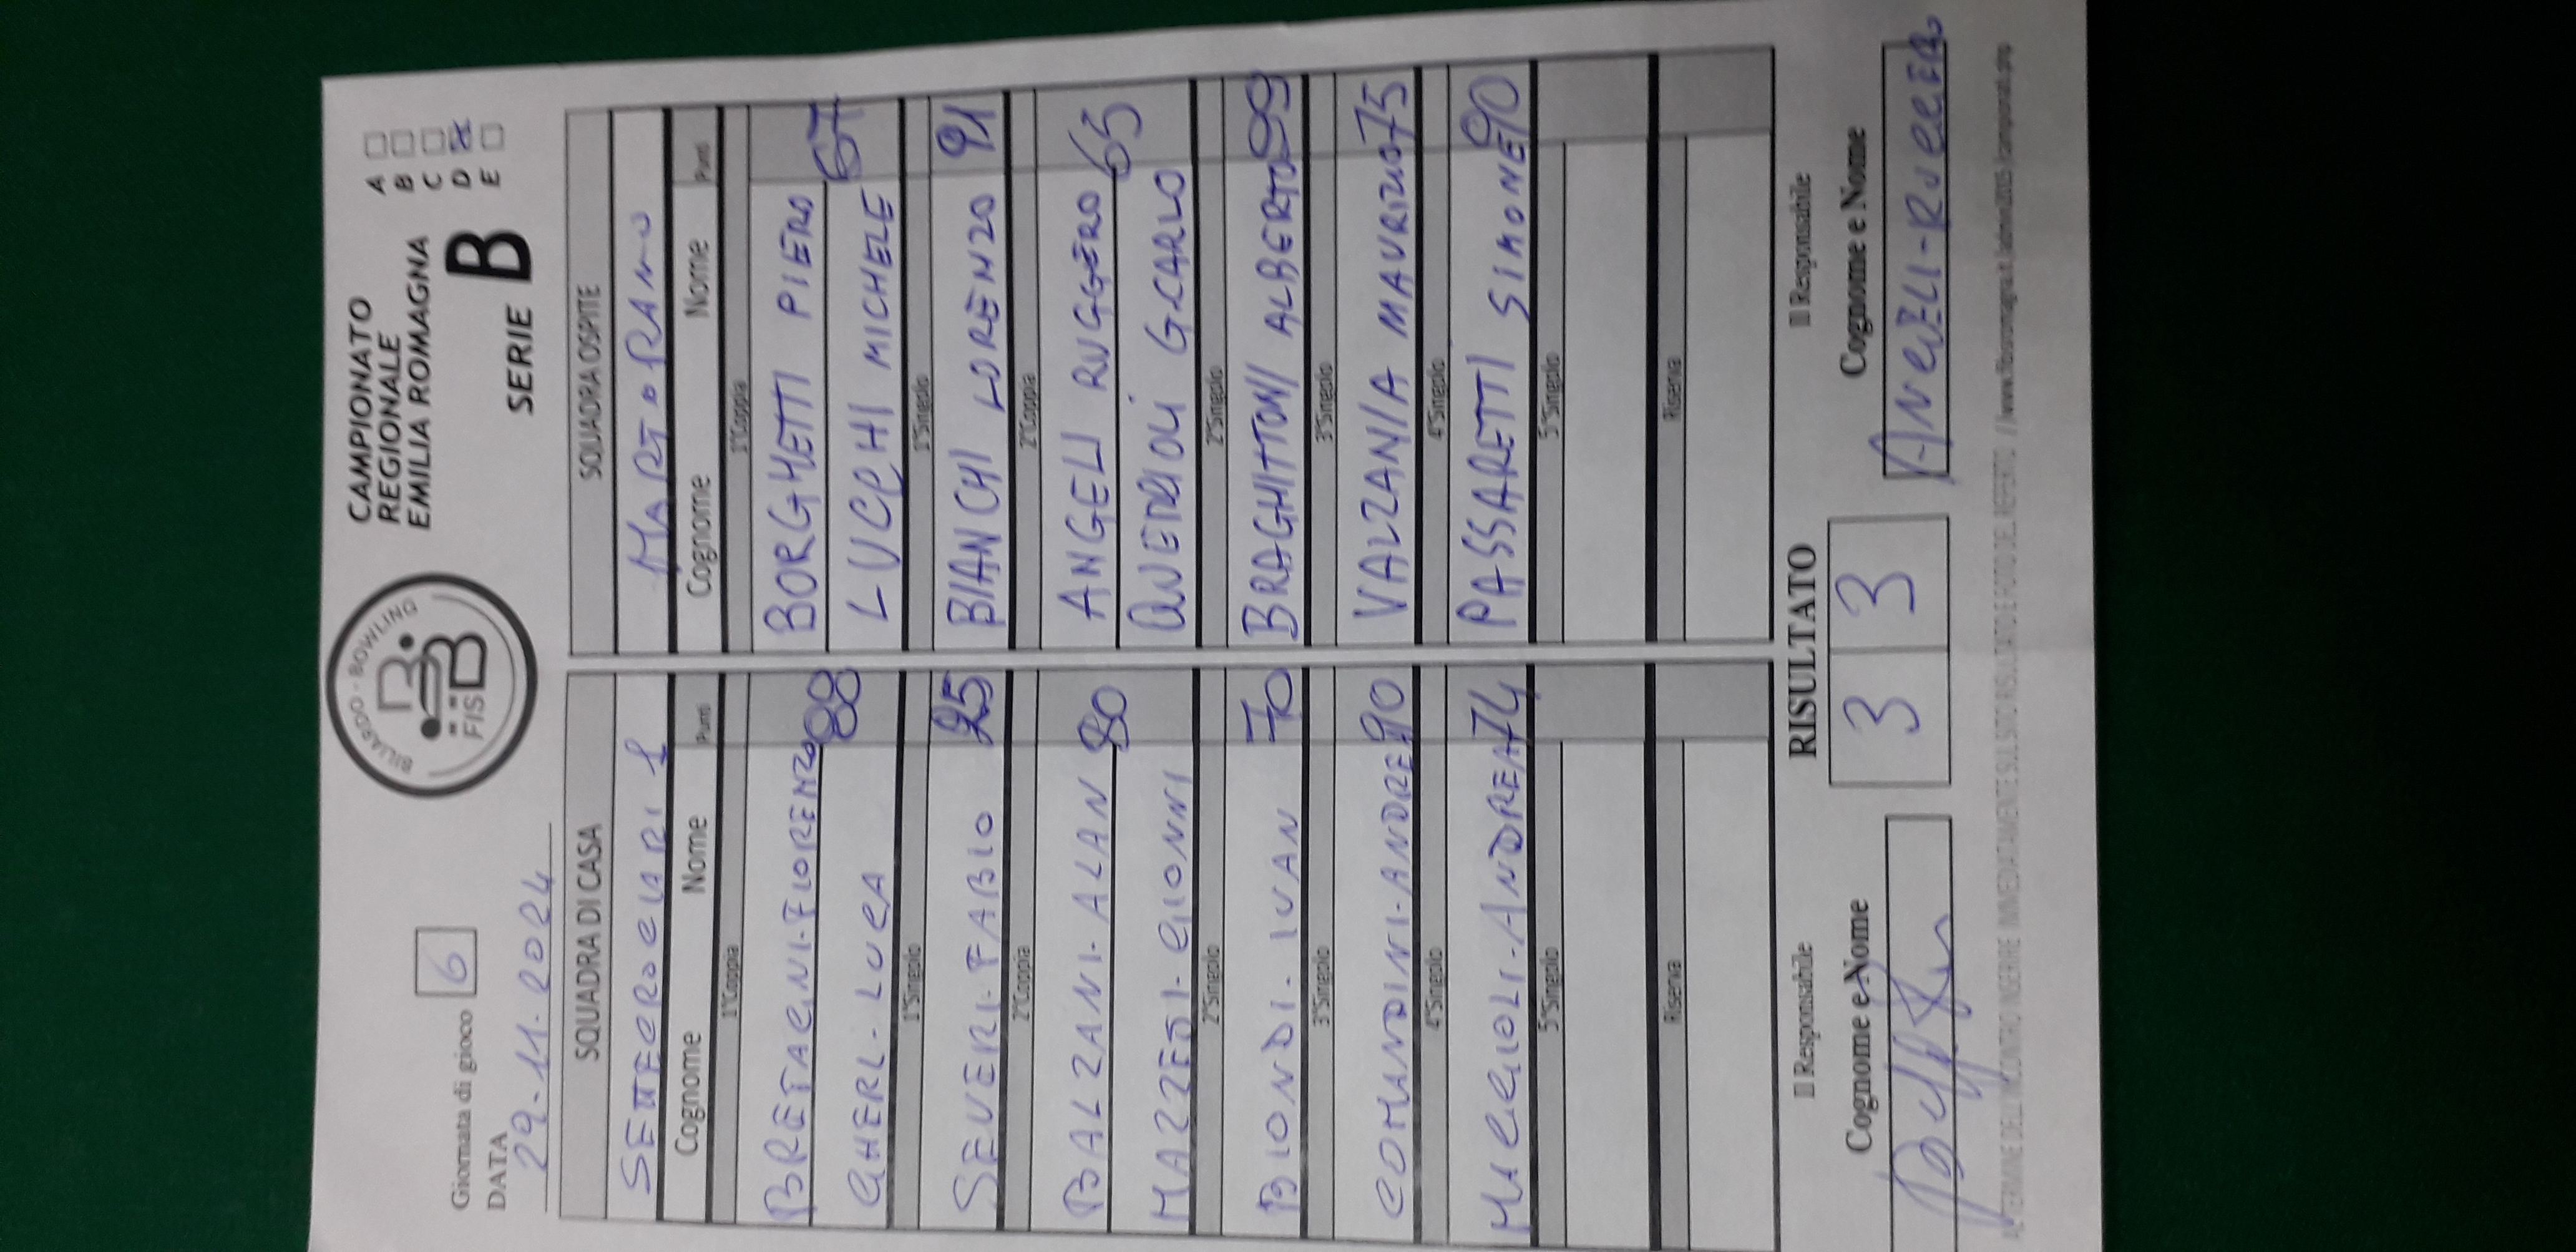 BILIARDO - BOWLING
FISBB
CAMPIONATO
REGIONALE
EMILIA ROMAGNA
SERIE B
A
B
C
D x
E
Giornata di gioco 6
DATA
29-11-2024
SQUADRA DI CASA SQUADRA OSPITE
MARTORANO
Cognome Nome Punti Cognome Nome Punti
1°Coppia 1°Coppia
BRETAGNI-FIORENZO 88 BORGHETTI PIERO 67
GHERL-LUCA LUCCHI MICHELE
1°Singolo 1°Singolo
SEVERI-FABIO 25 BIANCHI LORENZO 91
2°Coppia 2°Coppia
BALZANI-ALAN 80 ANGELI RUGGERO 65
MAZZESI-GIONNI G.CARLO
2°Singolo 2°Singolo
BIONDI-IVAN 70 BRAGHITTONI ALBERTO 99
3°Singolo 3°Singolo
COMANDINI-ANDREA 90 VALZANIA MAURIZIO 75
4°Singolo 4°Singolo
MACCIOLI-ANDREA 74 PASSARETTI SIMONE 90
5°Singolo 5°Singolo
Riserva Riserva
Il Responsabile RISULTATO Il Responsabile
Cognome e Nome 3 3 Cognome e Nome
AL TERMINE DELL'INCONTRO INSERIRE IMMEDIATAMENTE SUL SITO RISULTATO E FOTO DEL REFERTO